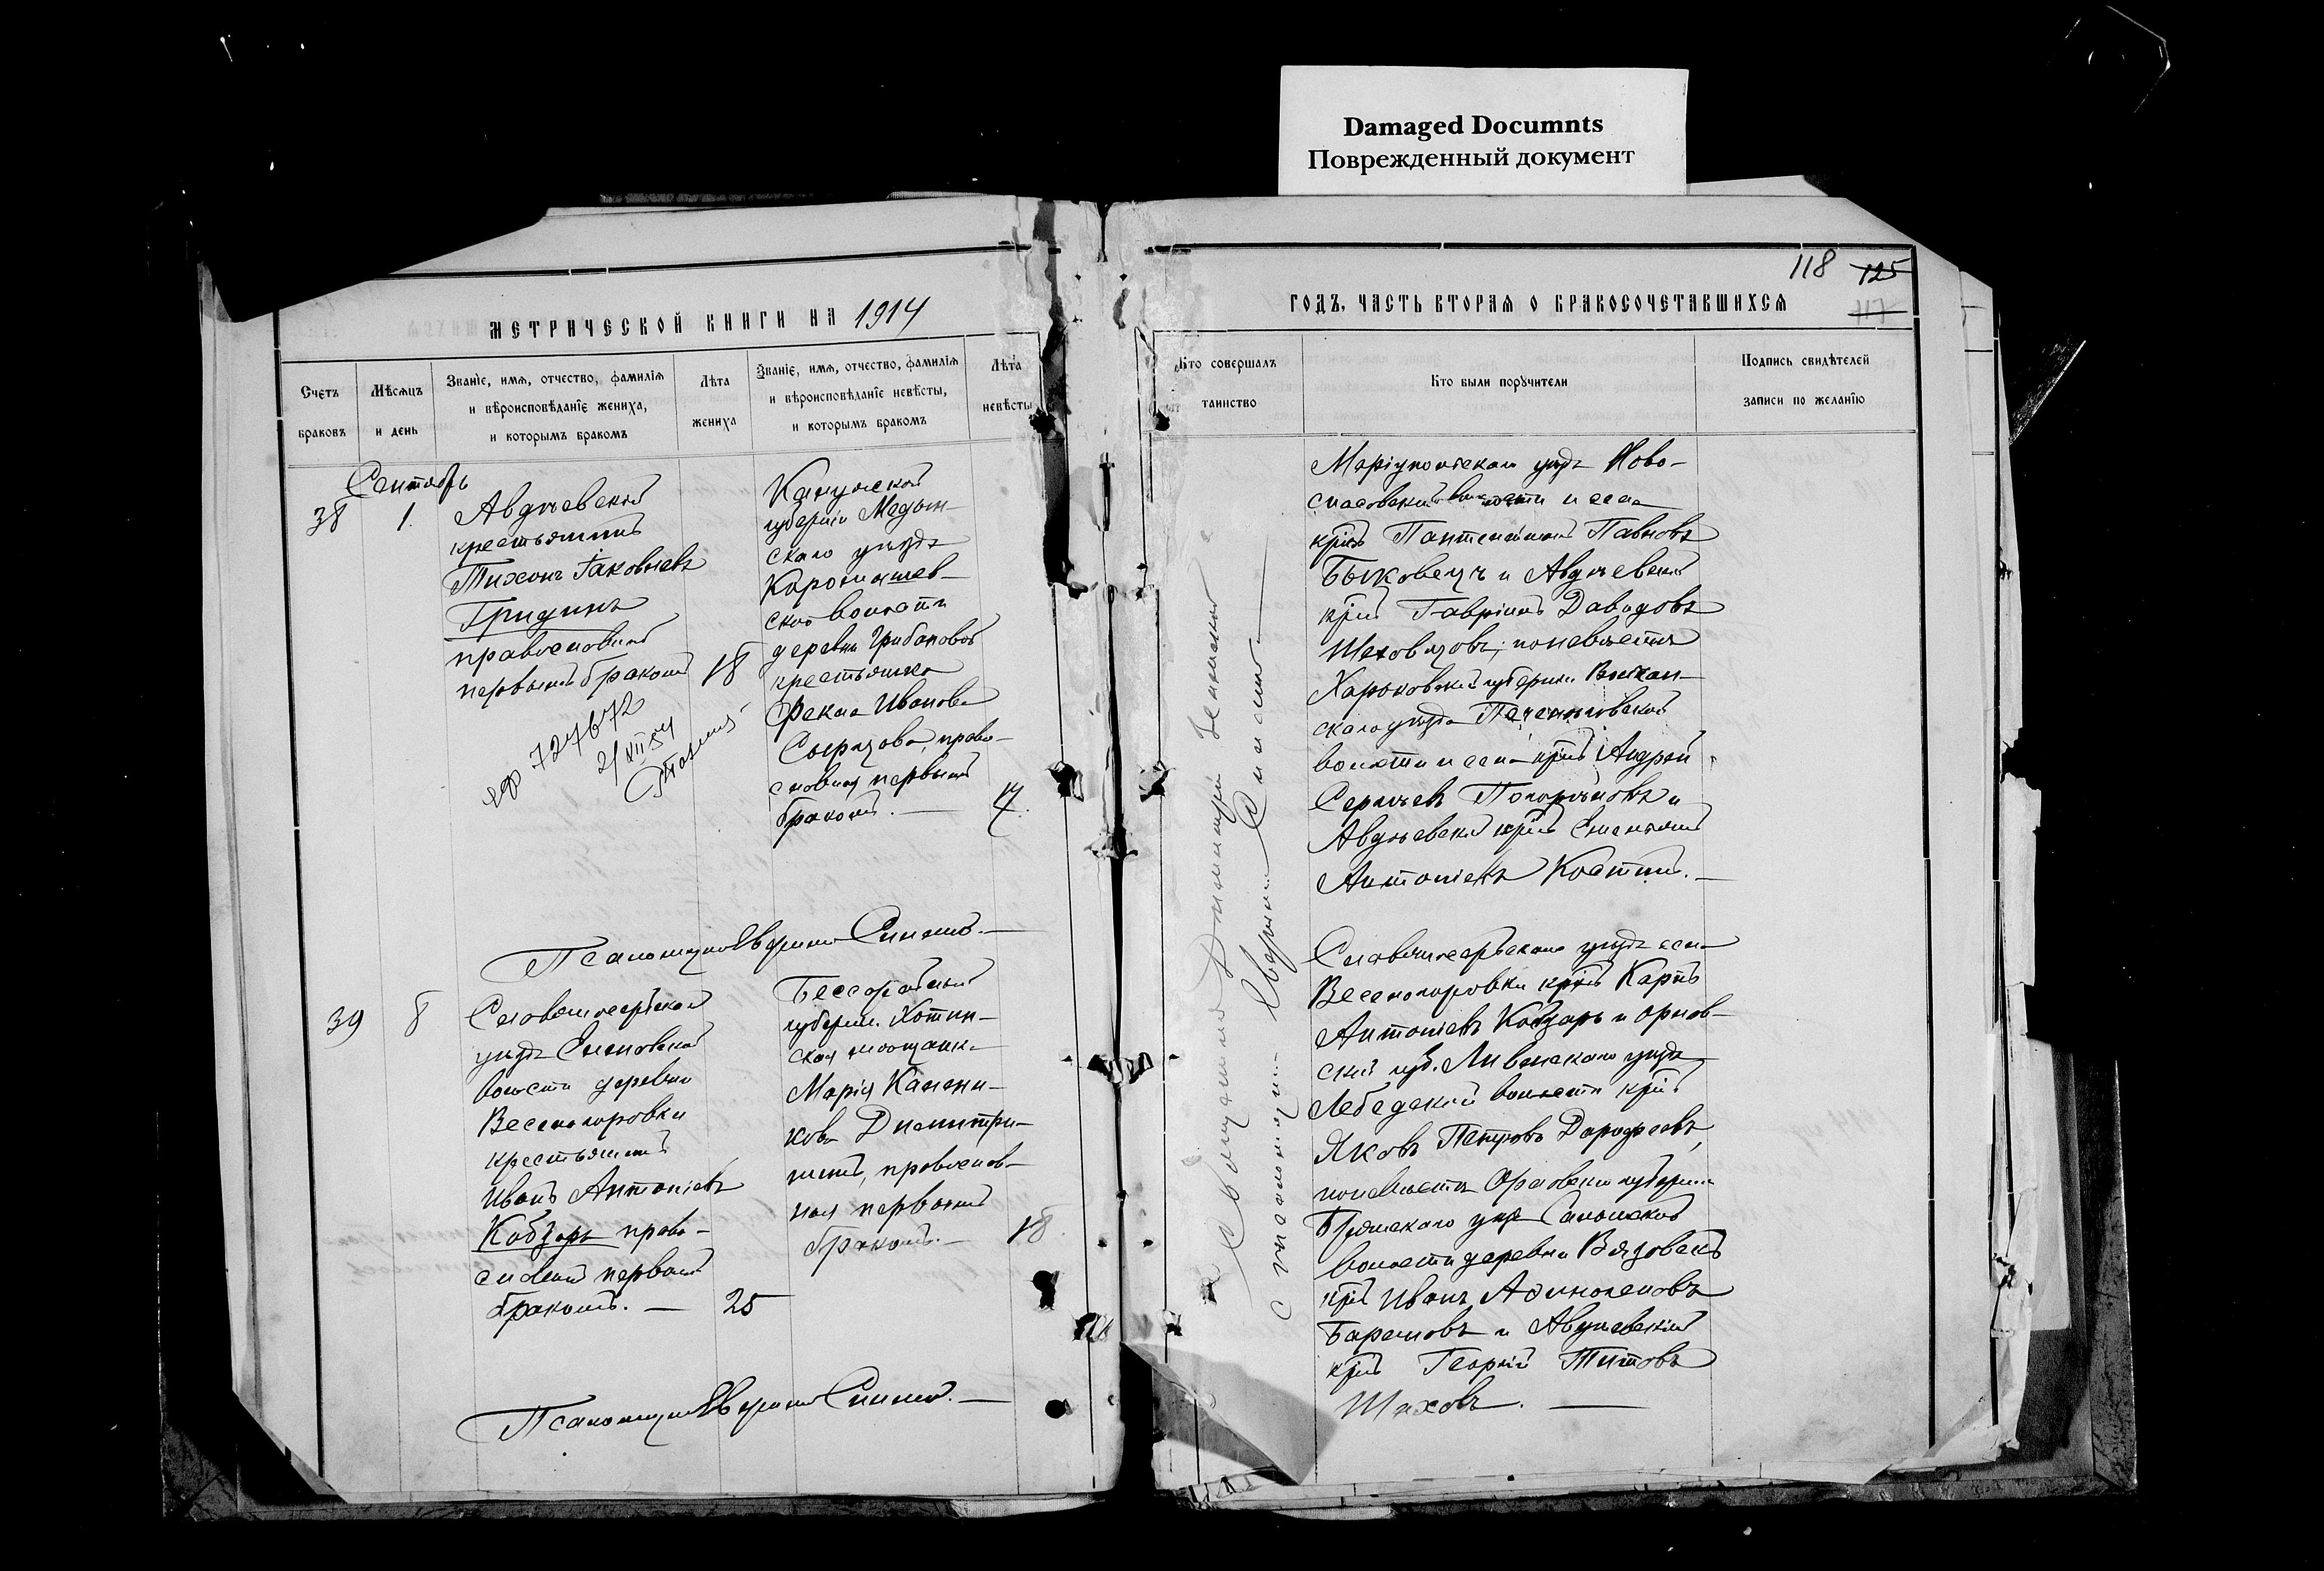 Damaged Documnts
Поврежденный документ
МЕТРИЧЕСКОЙ КНИГИ НА 1914
Счетъ
браковъ
Мѣсяцъ
и день
Званіе, имя, отчество, фамилія
и вѣроисповѣданіе жениха,
и которымъ бракомъ
Лѣта
жениха
Званіе, имя, отчество, фамилія
и вѣроисповѣданіе невѣсты,
и которымъ бракомъ
Лѣта
невѣсты
Сентябрь
38
1.
Авдѣевскій
крестьянинъ
Тихонъ Іаковлевъ
Гридинъ
православный
первымъ бракомъ
18
727672
2/XII 54
Калужской
губерніи Медын-
скаго уѣзда
ской волости
деревни Грибановой
крестьянка
Фекла Иванова
православ-
ная первымъ
бракомъ. —
17.
Псаломщикъ Аверкій Синько. —
39
8
Славяносербскаго
уѣзда Еленовской
волости деревни
Веселогоровки
крестьянинъ
Иванъ Антоніевъ
Кобзарь право-
славный первымъ
бракомъ. —
25
Бессарабской
губерніи Хотин-
ская мѣщанка
Марія
православ-
ная первымъ
бракомъ. —
18
Псаломщикъ Аверкій Синько. —
118 125
117
ГОДЪ, ЧАСТЬ ВТОРАЯ О БРАКОСОЧЕТАВШИХСЯ
Кто совершалъ
таинство
Кто были поручители
Подпись свидѣтелей
записи по желанію
Священникъ Димитрій
съ псаломщикомъ Аверкіемъ Синько —
Маріупольскаго уѣзда Ново-
спасовской волости и села
кр-нъ Пантелеимонъ Павловъ
Быковецъ и Авдѣевскій
кр-нъ Гавріилъ Давидовъ
Шеховцовъ; по невѣстѣ
Харьковской губерніи Волчан-
скаго уѣзда Печенѣговской
волости и села кр-нъ Андрей
Сергѣевъ Погорѣловъ и
Авдѣевскій кр-нъ Емельянъ
Антоніевъ Костинъ. —
Славяносербскаго уѣзда села
Веселогоровки кр-нъ Карпъ
Антоніевъ Кобзарь и Орлов-
ской губ. Ливенскаго уѣзда
Лебедской волости кр-нъ
Яковъ Петровъ Дорофеевъ,
по невѣстѣ Орловской губерніи
Брянскаго уѣзда
волости деревни Вязовскъ
кр-нъ Иванъ
Барановъ и Авдѣевскій
кр-нъ Георгій Титовъ
Шаховъ. —